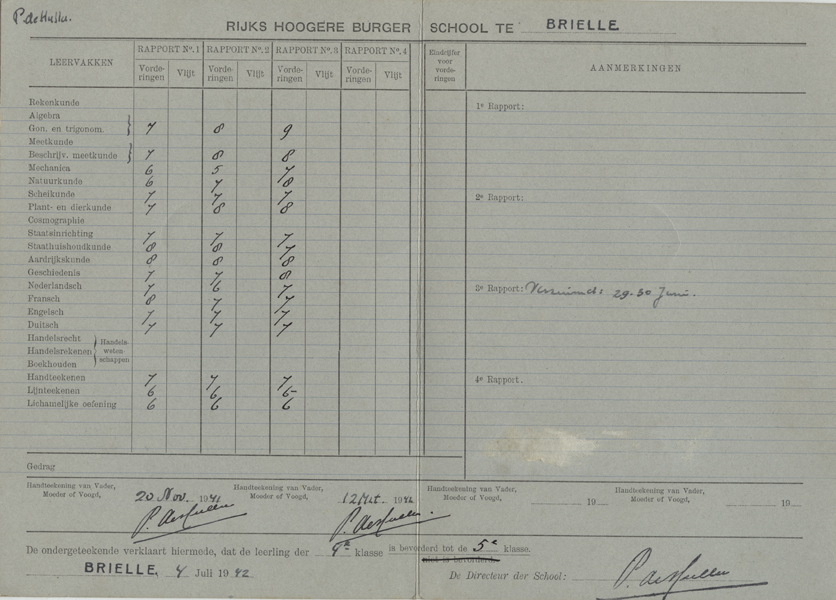 P. de Hullu.
RIJKS HOOGERE BURGER SCHOOL TE BRIELLE
LEERVAKKEN
RAPPORT No. 1 RAPPORT No. 2 RAPPORT No. 3 RAPPORT No. 4
Vorderingen Vlijt Vorderingen Vlijt Vorderingen Vlijt Vorderingen Vlijt
Eindcijfer voor vorderingen
AANMERKINGEN
Rekenkunde
Algebra
Gon. en trigonom. 7 8 9
Meetkunde
Beschrijv. meetkunde 7 8 8
Mechanica 6 5 7
Natuurkunde 6 7 8
Scheikunde 7 7 7
Plant- en dierkunde 7 8 8
Cosmographie
Staatsinrichting 7 7 7
Staathuishoudkunde 8 8 7
Aardrijkskunde 8 8 8
Geschiedenis 7 7 8
Nederlandsch 7 6 7
Fransch 8 7 7
Engelsch 7 7 7
Duitsch 7 7 7
Handelsrecht
Handelsrekenen
Boekhouden
Handels-
weten-
schappen
Handteekenen 7 7 7
Lijnteekenen 6 6 6-
Lichamelijke oefening 6 6 6
1e Rapport:
2e Rapport:
3e Rapport: Verzuimd: 29-30 Juni.
4e Rapport.
Gedrag
Handteekening van Vader,
Moeder of Voogd,
20 Nov. 1941
P. de Hullu
Handteekening van Vader,
Moeder of Voogd,
12 Mrt 1942
P. de Hullu.
Handteekening van Vader,
Moeder of Voogd,
19
Handteekening van Vader,
Moeder of Voogd,
19
De ondergeteekende verklaart hiermede, dat de leerling der 4e klasse is bevorderd tot de 5e klasse.
niet is bevorderd.
BRIELLE, 4 Juli 1942
De Directeur der School: P. de Hullu